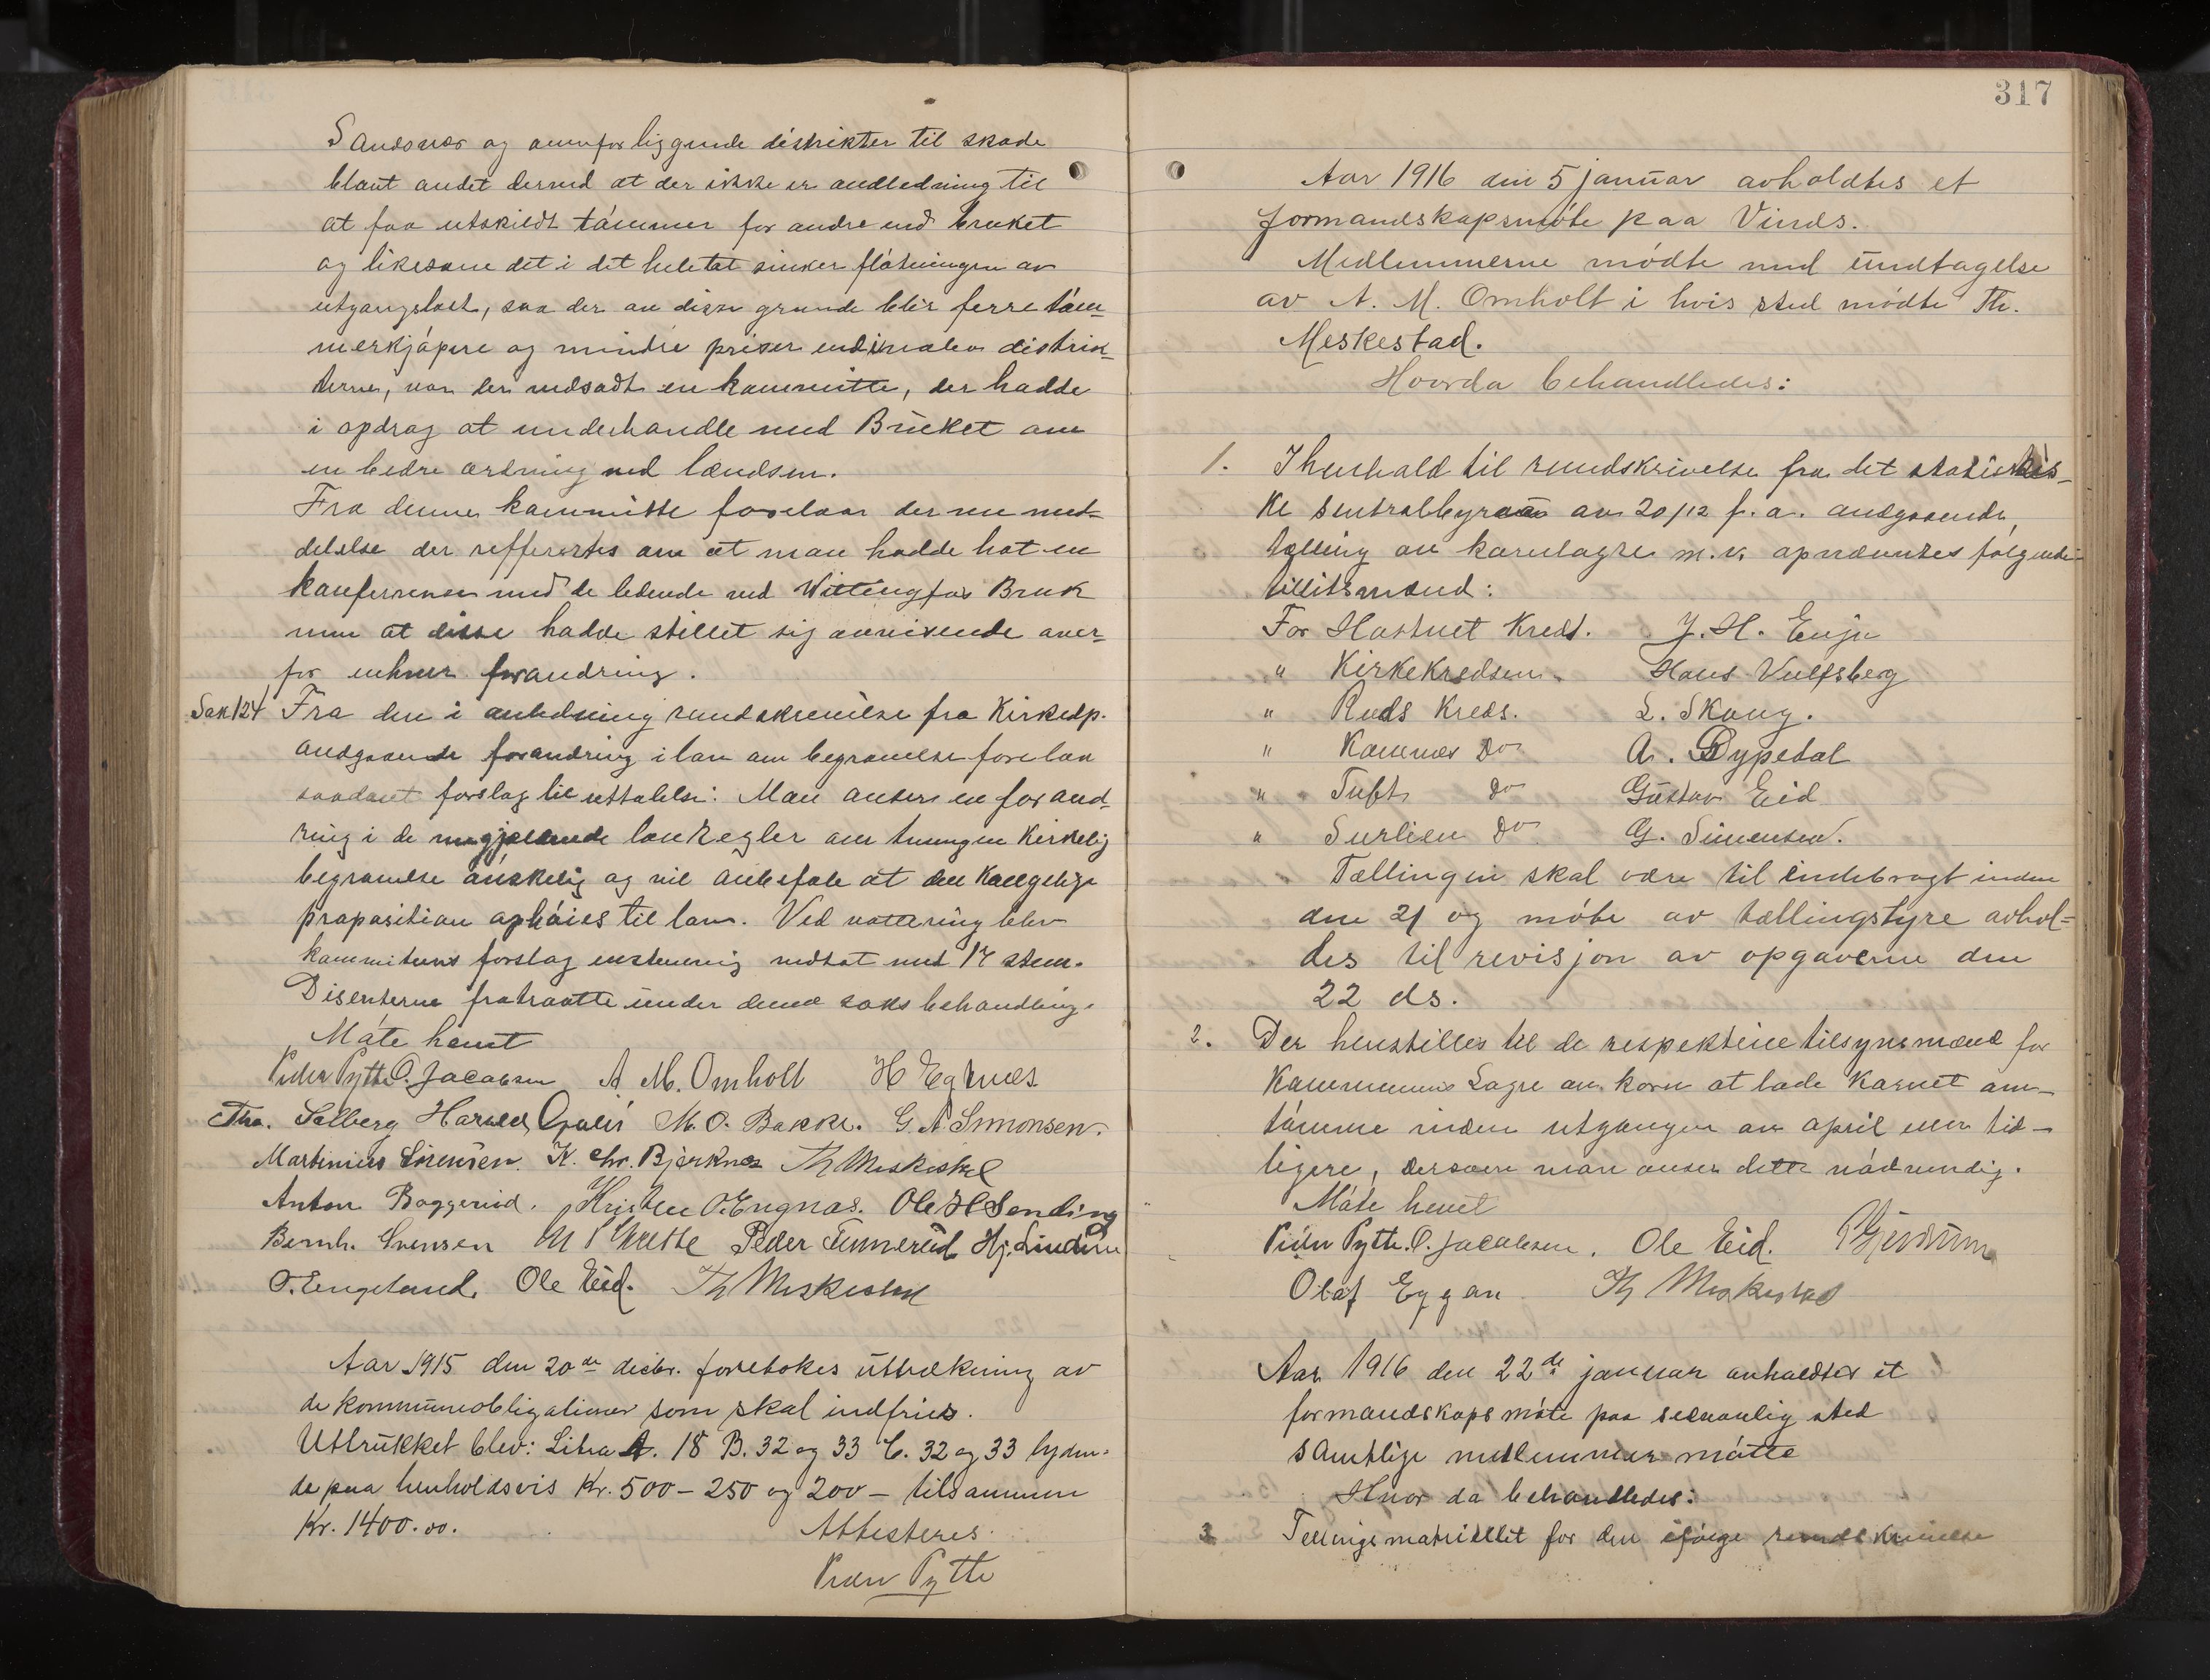 Sandsvær og ovenfor liggende distrikter til skade
blant andet derved at der ikke er andledning til
at faa utskildt tømmer for andre end bruket
og likesom det i det heletat sinker fløtningen av
utgangslast, saa der av disse grunde blir ferre tøm-
merkjøpere og mindre priser end i nabo distrik-
terne, var der nedsadt en kommitte, der hadde
i opdrag at underhandle med Bruket om
en bedre ordning ved lændsen.
Fra denne kommitte forelaa der nu med-
delelse der refferertes om at man hadde hat en
konferense med de ledende ved Wittingfos Bruk
men at disse hadde stillet sig avvisende over-
for enhver forandring.
Sak 124 Fra den i anledning rundskrivelse fra Kirkedp.
angaaende forandring i lov om begravelse forelaa
saadant forslag til uttalelse: Man anser en forand-
ring i de nugjældende lovregler om tvungen Kirkelig
begravelse ønskelig og vil anbefale at den Kongelige
proposition ophøies til lov. Ved vottering blev
kommiteens forslag enstemmig vedtat med 17 stem.
Disenterne fratraatte under denne saks behandling.
Møte hævt
Peder Pytte O. Jacobsen A. M. Omholt H Egnæs
Tho. Solberg Harald M. O. Bakke. G. A Simonsen.
Martinius Sørensen. K. Chr. Bjerknes Th Meskestad
Anton Baggerud. Kristen O. Engnæs. Ole H Sending
Bernh. Svensen Peder Tunnerud Hj. Lindem
O. Engeland. Ole Eid. Th Meskestad
Aar 1915 den 20de decbr. foretokes uttrækning av
de kommuneobligationer som skal indfries.
Uttrukket blev: Litra A. 18 B. 32 og 33 C. 32 og 33 lyden-
de paa henholdsvis Kr. 500 - 250 og 200 - tilsammen
Kr. 1400.00.
Attesteres
Peder Pytte
317
Aar 1916 den 5 januar avholdtes et
formandskapsmøte paa Vinds.
Medlemmerne mødte med undtagelse
av A. M. Omholt i hvis sted mødte Th.
Meskestad.
Hvorda behandledes:
1. I henhold til rundskrivelse fra det statistis-
ke Sentralbyraa av 20/12 f. a. angaaende
tælling av kornlagre m.v. opnævntes følgende
tillitsmænd:
For Hostvet Kreds. J. H. Enju
" Kirkekredsen. Hans Vulfsberg
" Ruds Kreds. L. Skaug.
" Komnæs Do A. Dypedal
" Tuft Do Gustav Eid
" Surlien Do G. Simensen.
Tællingen skal være til endebragt inden
den 21 og møte av tællingstyre avhol-
des til revisjon av opgaverne den
22 ds.
2. Der henstilles til de respektive tilsynsmænd for
Kommunens Lagre av korn at lade Kornet om-
tømme inden utgangen av april eller tid-
ligere, dersom man anser dette nødvendig.
Møte hævet
Peder Pytte. O. Jacobsen. Ole Eid.
Olaf Eggar Th Meskestad
Aar 1916 den 22de januar avholdtes et
formandskapsmøte paa sedvanlig sted
samtlige medlemmer møtte
Hvor da behandledes:
3 Tellingsmatriellet for den ifølge rundskrivelse